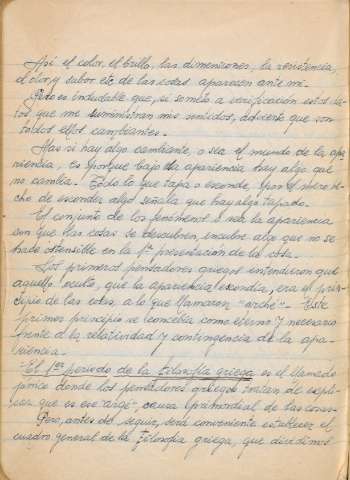 Así el color, el brillo, las dimensiones, la resistencia,
el olor y sabor etc. de las cosas aparecen ante mi.
Pero es indudable que, si someto a verificación estos da-
tos que me suministran mis sentidos, advierto que son
todos ellos cambiantes.
Mas si hay algo cambiante, o sea el mundo de la apa-
riencia, es porque bajo la apariencia hay algo que
no cambia. Todo lo que tapa o esconde, por el mero he-
cho de esconder algo señala que hay algo tapado.
El conjunto de los fenómenos o sea la apariencia
con que las cosas se descubren, encubre algo que no se
hace ostensible en la 1ª presentación de la cosa.
Los primeros pensadores griegos entendieron que
aquello oculto, que la apariencia escondia, era el prin-
cipio de las cosas, a lo que llamaron "arché". Este
primer principio se concebia como eterno y necesario
frente a la relatividad y contingencia de la apa-
riencia.
El 1er periodo de la Filosofía griega es el llamado
donde los pensadores griegos tratan de expli-
car que es ese "argé", causa primordial de las cosas.
Pero, antes de seguir, será conveniente establecer el
cuadro general de la Filosofía griega, que dividimos